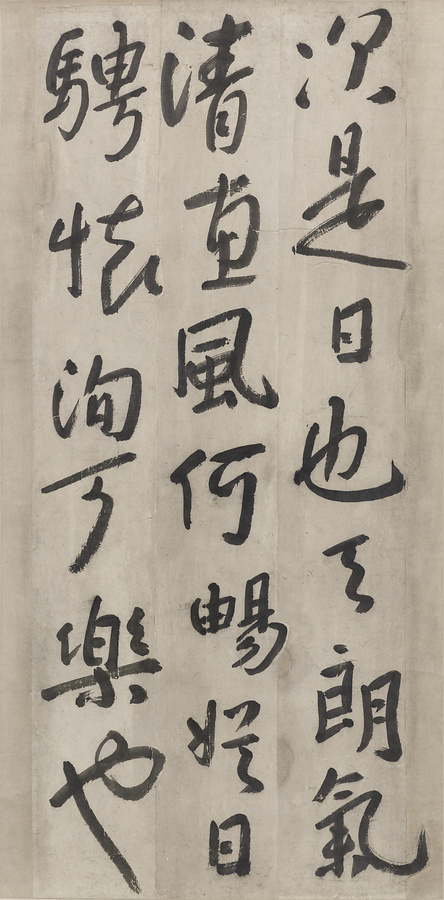 次是日也天朗氣
清惠風何暢娛日
騁懷洵可樂也